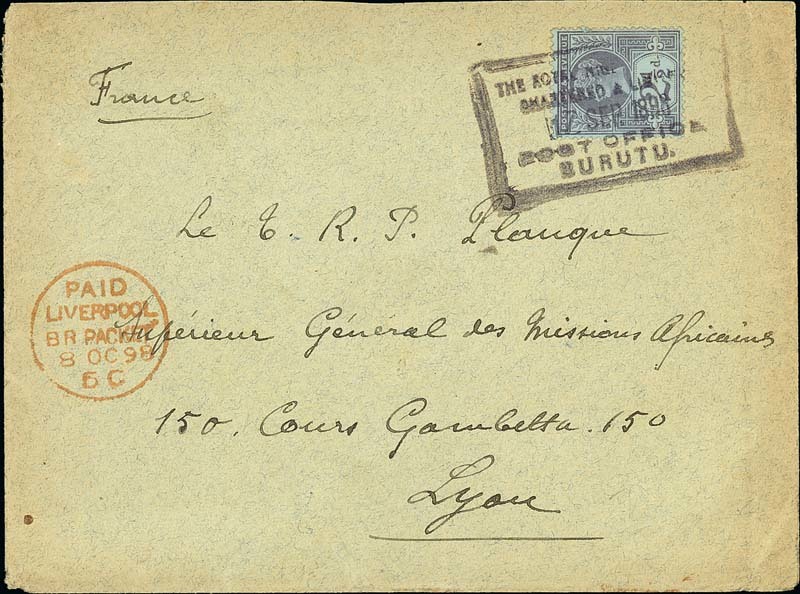 France
THE ROYAL
CHARTERED & LIM
SEP 1898
POST OFFICE
BURUTU.
Le T. R. P. Planque
PAID
LIVERPOOL
BR PACKET
8 OC 98
5 C
Supérieur Général des Missions Africaines
150. Cours Gambetta. 150
Lyon